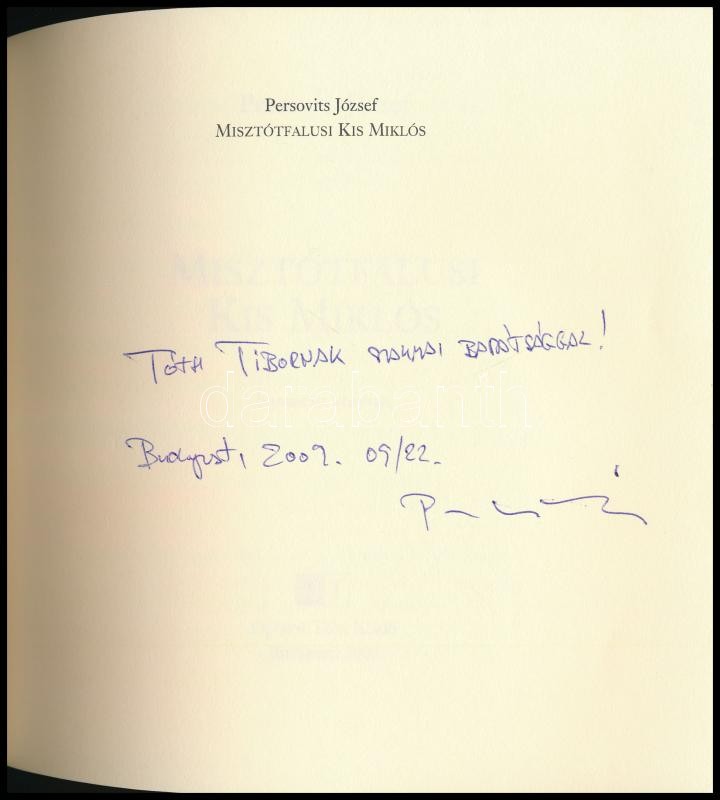 Persovits József
MISZTÓTFALUSI KIS MIKLÓS
MISZTÓTFALUSI
KIS MIKLÓS
TÓTH TIBORNAK BARÁTSÁGGAL!
darabanth
Budapest, 2009. 09/22.